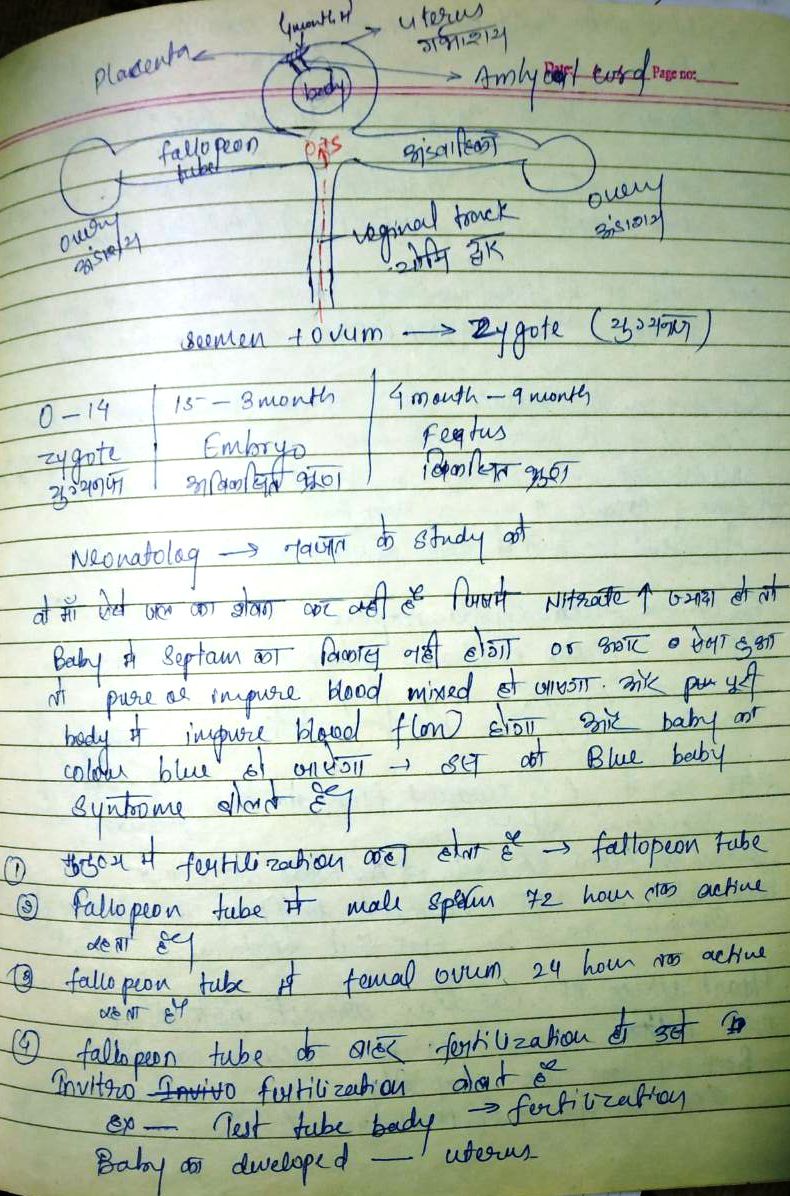 4month
uterus
गर्भाशय
Placenta
body
Page no:
fallopeon
tube
अंडवाहिका
overy
अंडाशय
overy
अंडाशय
veginal track
योनि ट्रैक
seemen + ovum → Zygote (युग्मनज)
0-14 15 - 3month 4 month - 9 month
zygote Embryo Featus
युग्मनज अविकसित भ्रूण विकसित भ्रूण
Neonatolog → नवजात के study को
वो माँ ऐसे जल का सेवन कर रही है जिसमे Nitrate ↑ ज्यादा हो तो
Baby मे septam का विकास नही होगा or अगर ऐसा हुआ
तो pure or impure blood mixed हो जाएगा. और पूरी
body मे impure blood flow होगा और baby का
colour blue हो जाएगा → इस को Blue baby
syntrome बोलते हैं
① मनुष्य मे fertilization कहा होता है → fallopeon tube
② fallopeon tube मे male sperm 72 hour तक active
रहता है
③ fallopeon tube मे femal ovum 24 hour तक active
रहता है
④ fallopeon tube के बाहर fertilization हो उसे
Invitro Invivo fertilization बोलते हैं
ex — Test tube body → fertilization
Baby का dweloped — uterus